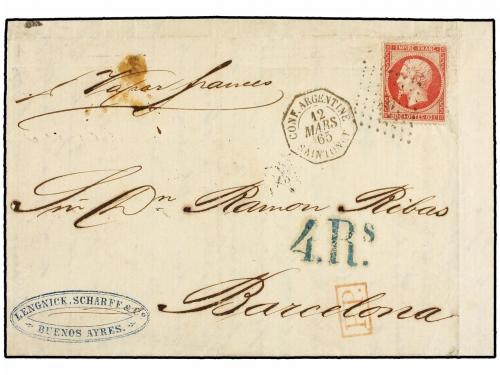 EMPIRE FRANC
p. Vapor frances
CONF. ARGENTINE
12
MARS
65
SAINTONGE
Sr. Dn. Ramon Ribas
4.Rs
Barcelona
P.P.
LENGNICK, SCHARFF & Co
BUENOS AYRES.